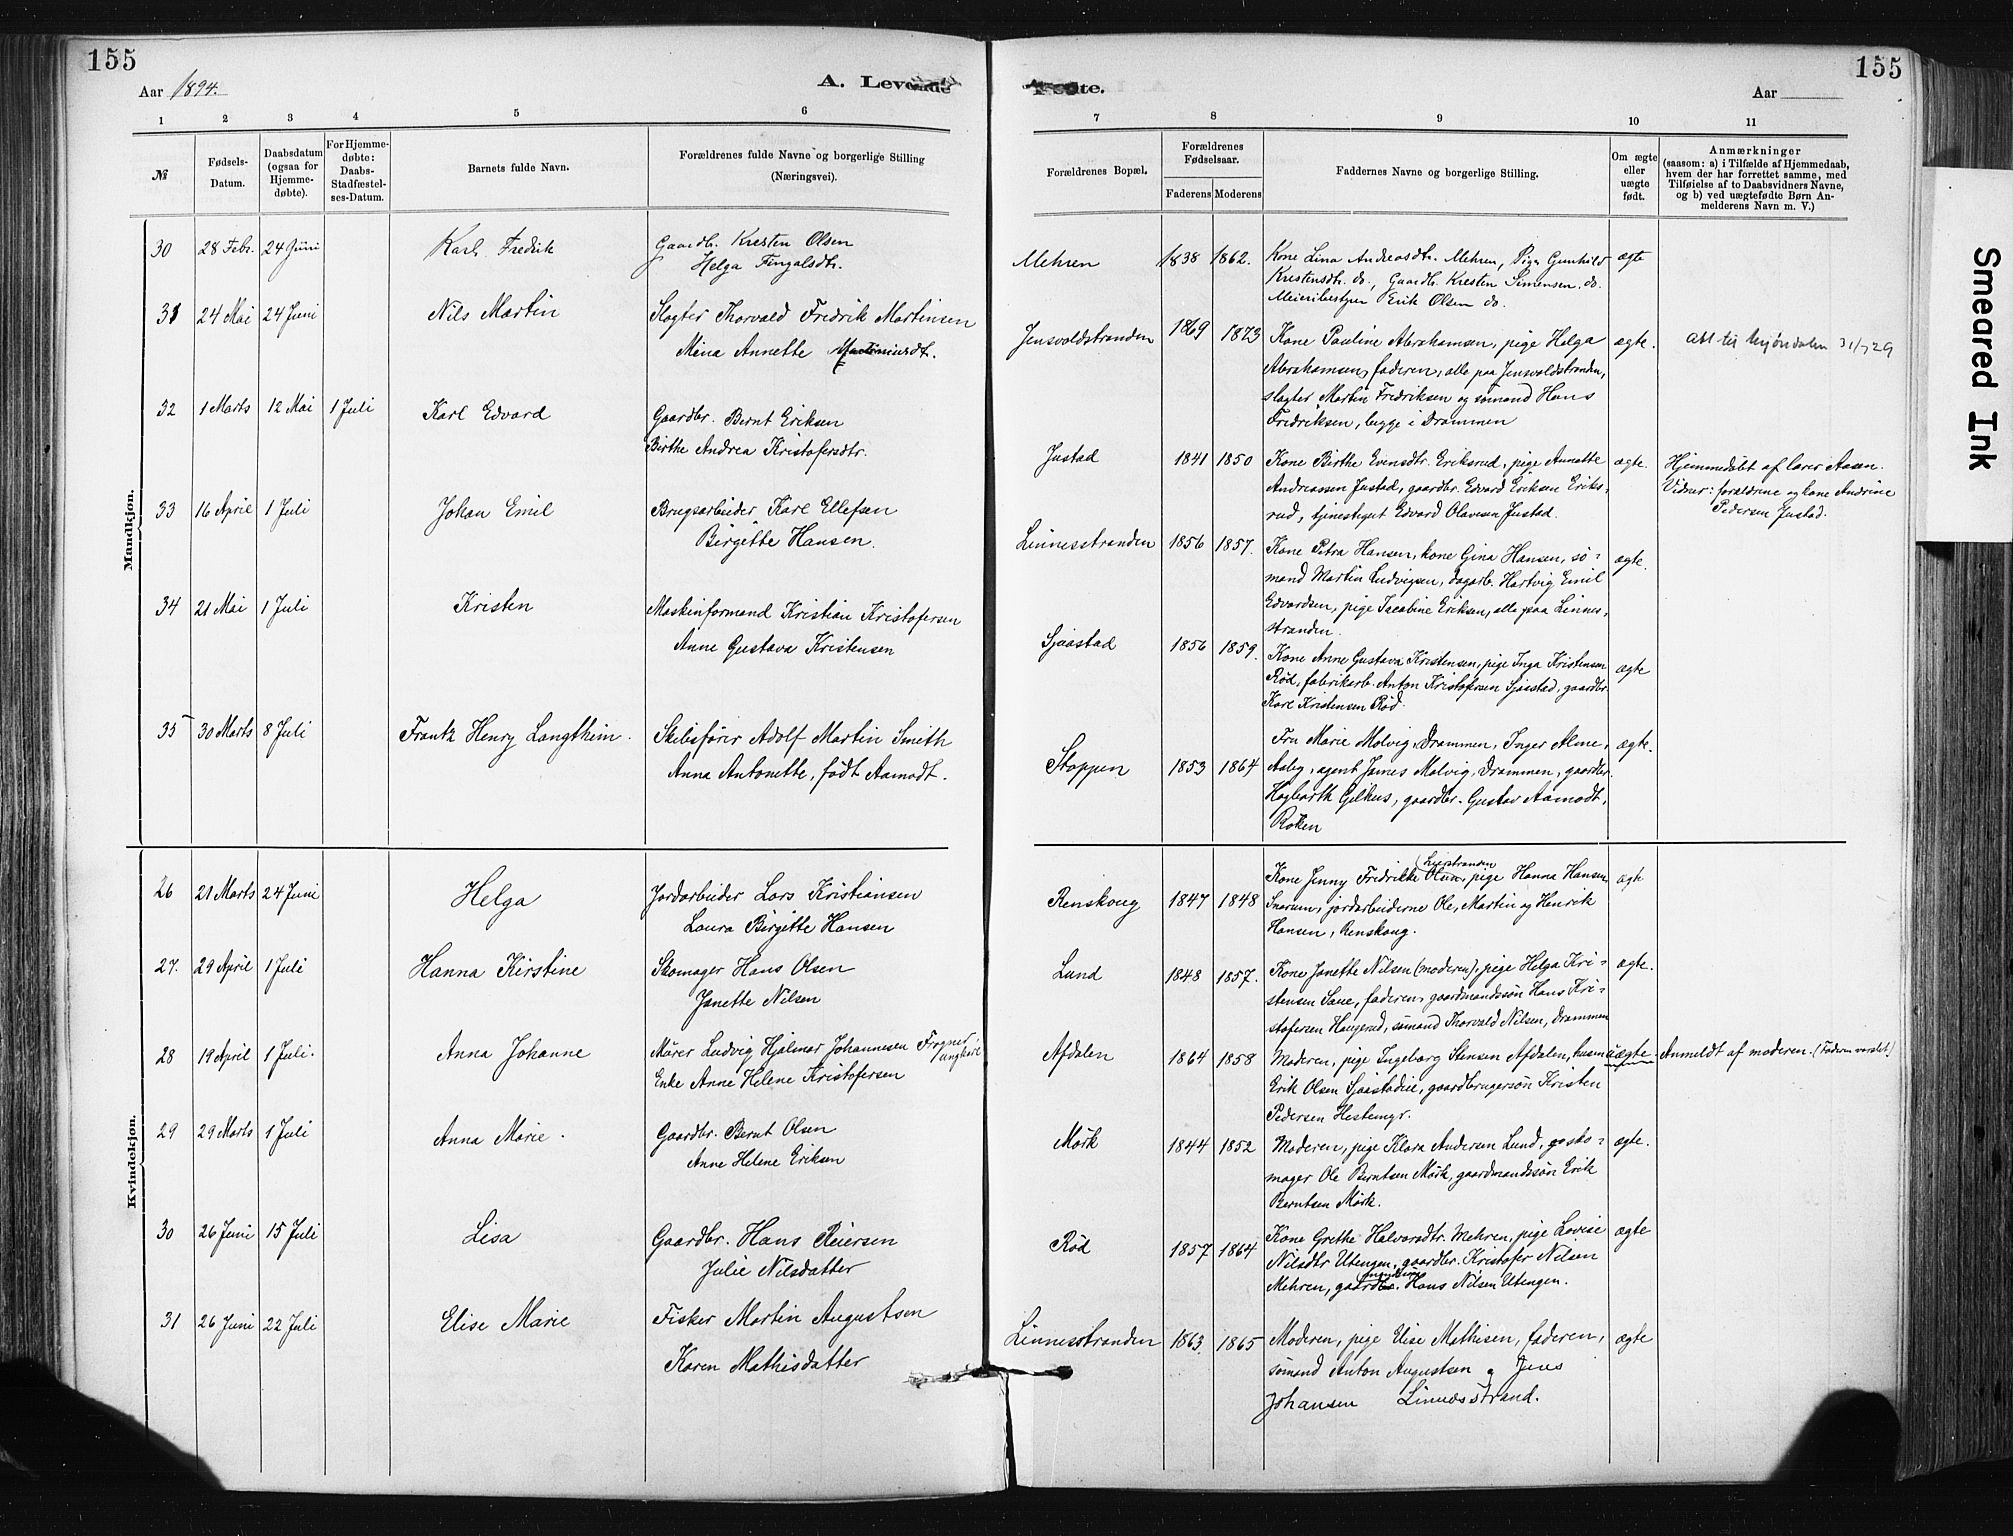 155
Aar 1894.
A. Levende
1 2 3 4 5 6
№
Fødsels-
Datum.
Daabsdatum
(ogsaa for
Hjemme-
døbte).
For Hjemme-
døbte:
Daabs-
Stadfæstel-
ses-Datum.
Barnets fulde Navn.
Forældrenes fulde Navne og borgerlige Stilling
(Næringsvei).
Mandkjøn.
30 28 Febr. 24 Juni Karl Fredrik Gaardb. Kresten Olsen
Helga Fingalsdtr.
31 24 Mai 24 Juni Nils Martin Slagter Thorvald Fredrik Martinsen
Mina Annette
32 1 Marts 12 Mai 1 Juli Karl Edvard Gaardbr. Bernt Eriksen
Birthe Andrea Kristofersdtr.
33 16 April 1 Juli Johan Emil Brugsarbeider Karl Ellefsen
Birgitte Hansen.
34 21 Mai 1 Juli Kristen Maskinformand Kristian Kristofersen
Anne Gustava Kristensen
35 30 Marts 8 Juli Frantz Henry Langthim. Skibsfører Adolf Martin Smith
Anna Antonette, født Aamodt.
Kvindekjøn.
26 21 Marts 24 Juni Helga Jordarbeider Lars Kristiansen
Laura Birgitte Hansen
27. 29 April 1 Juli Hanna Kirstine Skomager Hans Olsen
Janette Nilsen
28 19 April 1 Juli. Anna Johanne Murer Ludvig Hjalmar Johannesen Frogner
ungkarl
Enke Anne Helene Kristofersen
29 29 Marts 1 Juli Anna Marie. Gaardbr. Bernt Olsen
Anne Helene Eriksen
30 26 Juni 15 Juli Lisa Gaardbr. Hans Reiersen
Julie Nilsdatter
31 26 Juni 22 Juli Elise Marie Fisker Martin Augustsen
Karen Mathisdatter
155
Fødte.
Aar
7 8 9 10 11
Forældrenes Bopæl.
Forældrenes
Fødselsaar.
Faderens Moderens
Faddernes Navne og borgerlige Stilling.
Om ægte
eller
uægte
født.
Anmærkninger
(saasom: a) i Tilfælde af Hjemmedaab,
hvem der har forrettet samme, med
Tilføielse af to Daabsvidners Navne,
og b) ved uægtefødte Børn An-
melderens Navn m. V.)
Mehren 1838 1862. Kone Lina Andreasdtr. Mehren, Pige Gunhild ægte
Kristensdtr. do., Gaardb. Kresten Simensen. do.
Meieribestyrer Erik Olsen do.
Jensvoldstranden 1869 1873 Kone Pauline Abrahamsen, pige Helga ægte. att til Mjøndalen 31/7 29
Abrahamsen, faderen, alle paa Jensvoldstranden,
slagter Martin Fredriksen og sømand Hans
Fredriksen, begge i Drammen
Justad 1841 1850 Kone Birthe Evensdtr. Eriksrud, pige Annette ægte. Hjemmedøbt af lærer Aasen.
Andreassen Justad, gaardbr. Edvard Eriksen Eriks- Vidner: forældrene og kone Andrine
rud, tjenestegut Edvard Olavesen Justad. Pedersen Justad.
Linnesstranden 1856 1857. Kone Petra Hansen, kone Gina Hansen, sø- ægte.
mand Martin Ludvigsen, dagarb. Hartvig Emil
Edvardsen, pige Jacobine Eriksen, alle paa Linnes-
stranden.
Sjaastad 1856 1859. Kone Anne Gustava Kristensen, pige Inga Kristensen ægte
Rød, fabrikarb. Anton Kristofersen Sjaastad, gaardbr.
Karl Kristensen Rød.
Stoppen 1853 1864 Fru Marie Molvig, Drammen, Inger Alme, ægte.
Aaby, agent James Molvig, Drammen, gaardbr.
Hagbarth Gilhus, gaardbr. Gustav Aamodt,
Røken
Renskoug 1847 1848 Kone Jenny Fredrikke Olsen, Lierstranden pige Hanna Hansen ægte
Snarum, jordarbeiderne Ole, Martin og Henrik
Hansen, Renskoug.
Lund 1848 1857. Kone Janette Nilsen (moderen), pige Helga Kri- ægte.
stensen Saue, faderen, gaardmandssøn Hans Kri-
stofersen Haugerud, sømand Thorvald Nilsen, Drammen
Afdalen 1864 1858 Moderen, pige Ingeborg Stensen Afdalen, husm. uægte. Anmeldt af moderen. (Faderen varslet)
Erik Olsen Sjaastadeie, gaardbrugersøn Kristen
Pedersen Hestemyr.
Mørk 1844 1852 Moderen, pige Klara Andersen Lund, sko- ægte.
mager Ole Berntsen Mørk, gaardmandssøn Erik
Berntsen Mørk.
Rød 1857 1864 Kone Grethe Halvorsdtr. Mehren, pige Lovise ægte
Nilsdtr Utengen, gaardbr. Kristofer Nilsen
Mehren, gaardbr. Hans Nilsen Utengen.
Linnesstranden 1863. 1865 Moderen, pige Elise Mathisen, faderen, ægte
sømand Anton Augustsen og Jens
Johansen Linnesstrand.
Smeared Ink